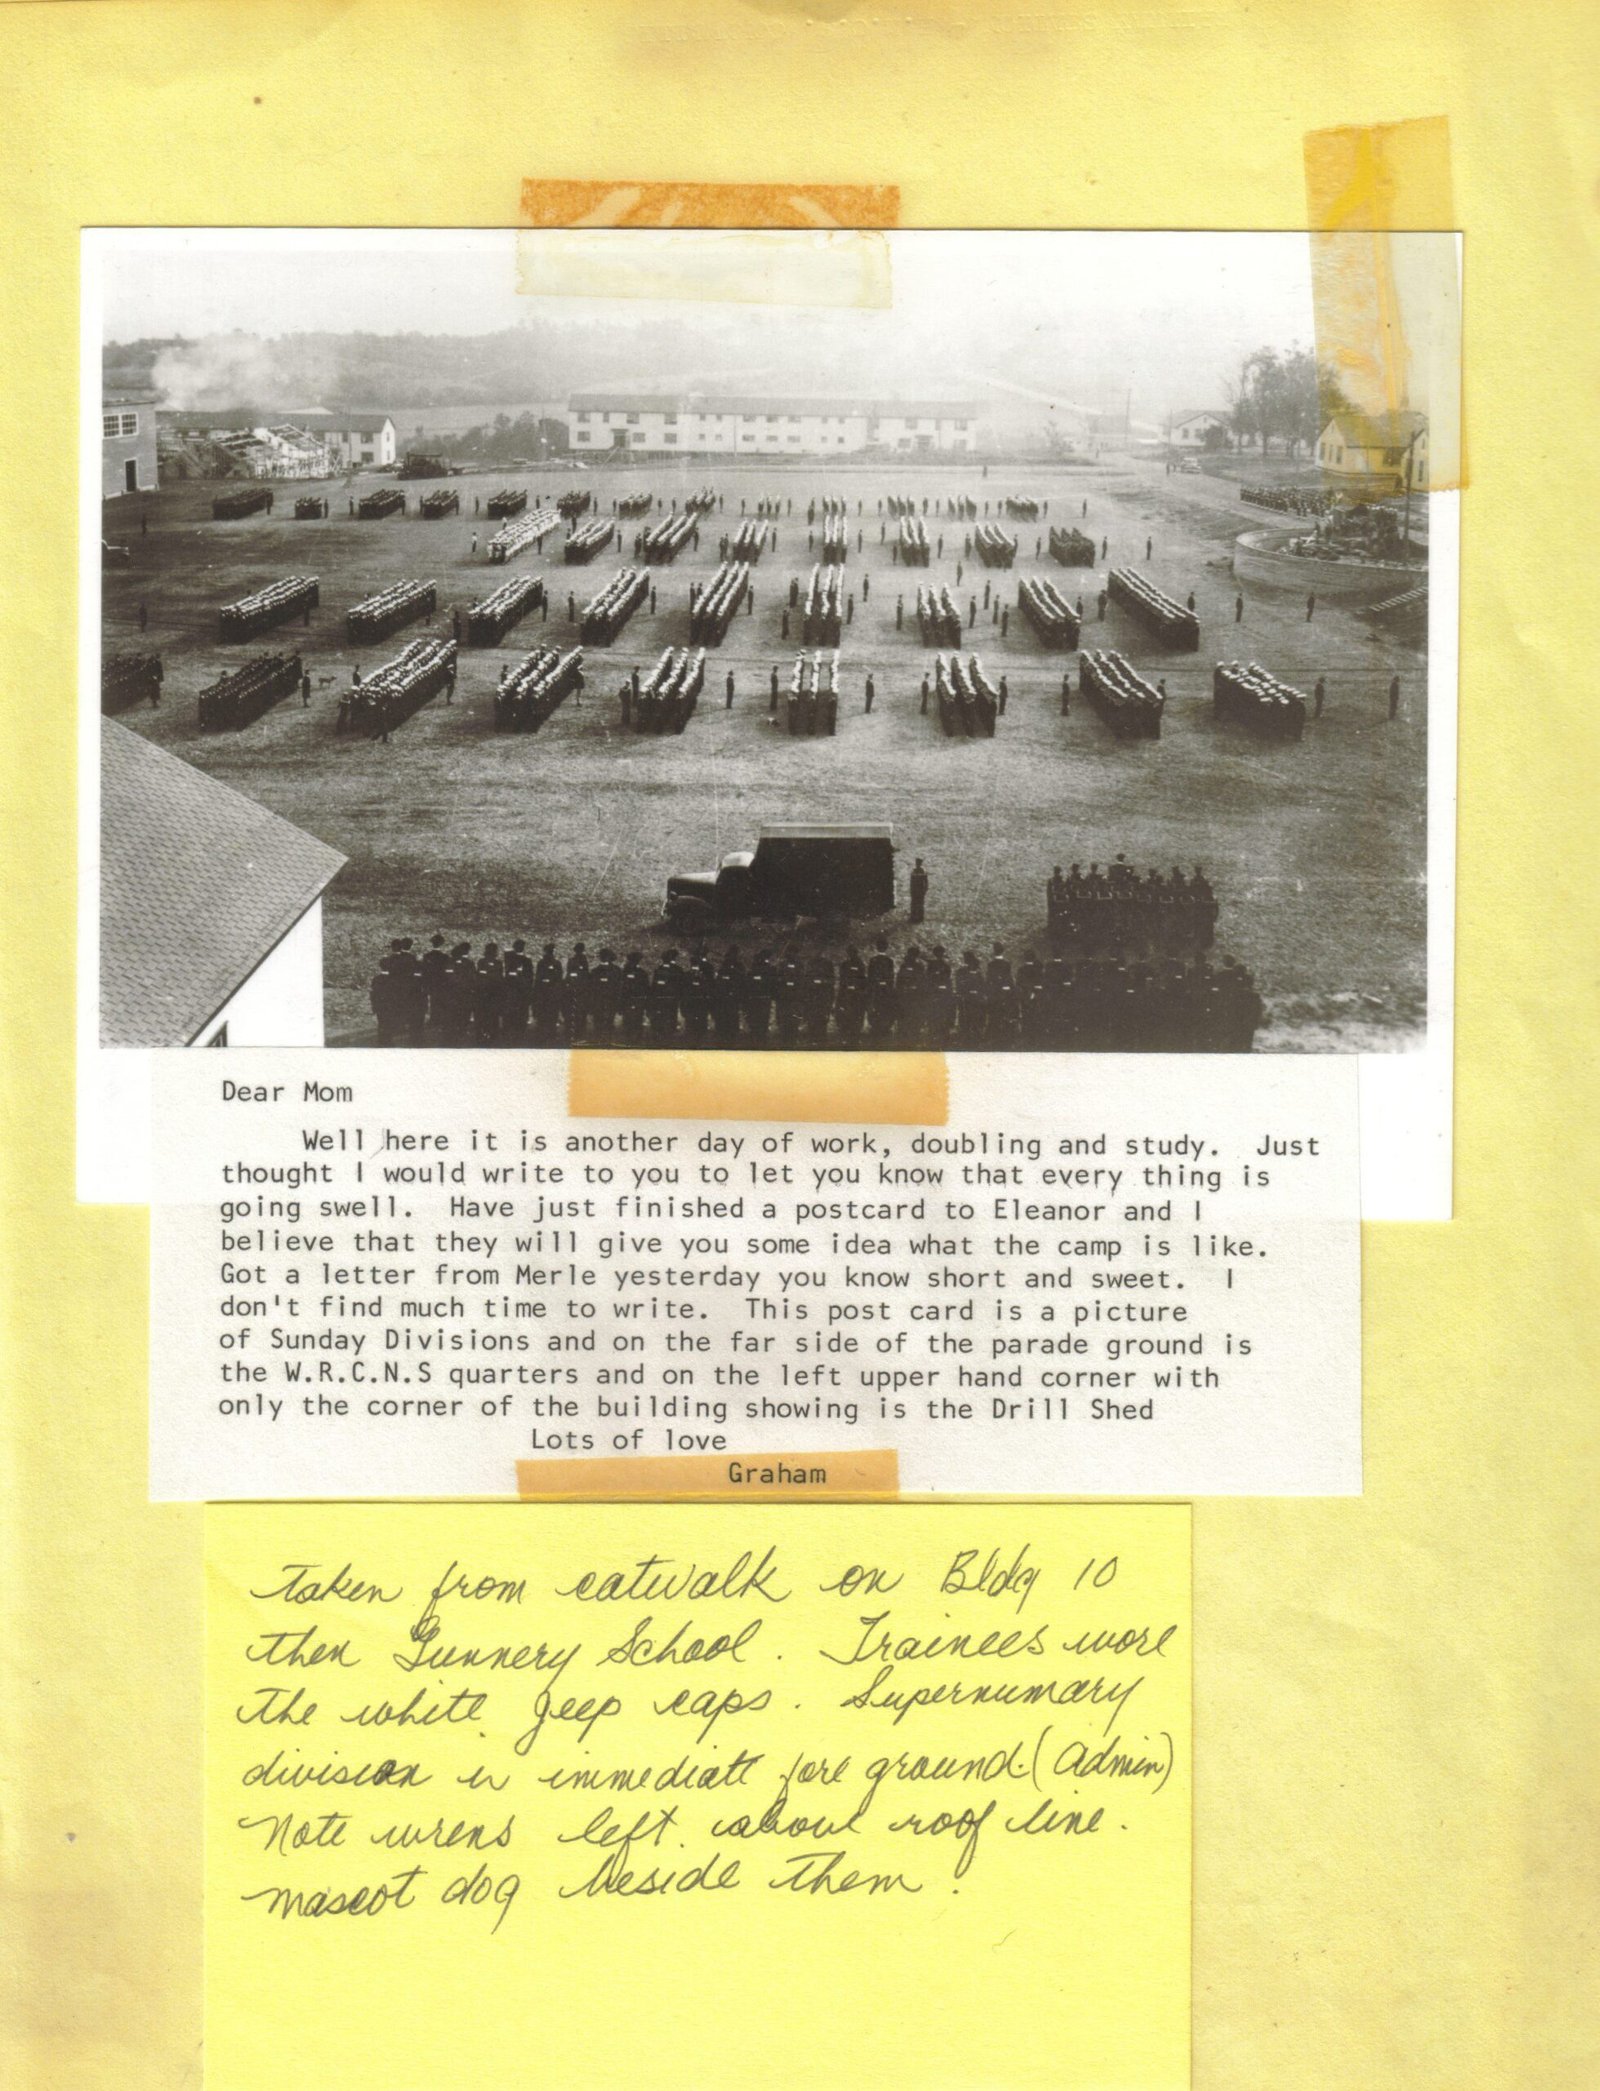 Dear Mom
Well here it is another day of work, doubling and study. Just
thought I would write to you to let you know that every thing is
going swell. Have just finished a postcard to Eleanor and I
believe that they will give you some idea what the camp is like.
Got a letter from Merle yesterday you know short and sweet. I
don't find much time to write. This post card is a picture
of Sunday Divisions and on the far side of the parade ground is
the W.R.C.N.S quarters and on the left upper hand corner with
only the corner of the building showing is the Drill Shed
Lots of love
Graham
taken from catwalk on Bldg 10
then Gunnery School. Trainees wore
the white jeep caps. Supernumary
division is immediate fore ground. (Admin)
Note wrens left above roof line.
mascot dog beside them.